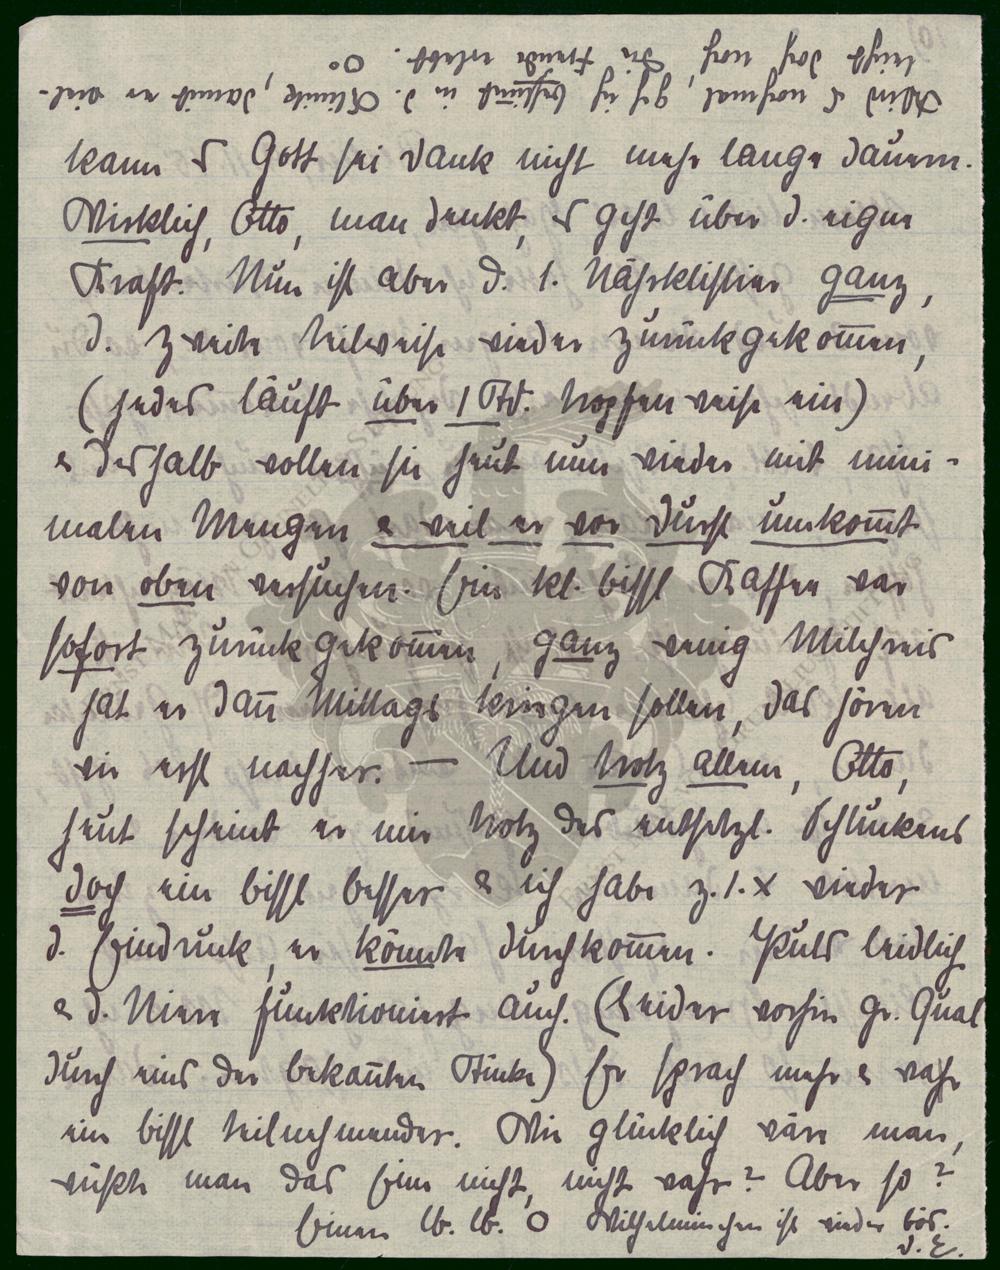 kann es Gott sei Dank nicht mehr lange dauern.
Wirklich, Otto, man denkt, es geht über d. eigne
Kraft. Nun ist aber d. 1. Nährklistier ganz,
d. zweite teilweise wieder zurückgekom̅en,
(jedes läuft über 1 Std. tropfenweise ein)
& deshalb wollen sie heut nun wieder mit mini-
malen Mengen & weil er vor Durst umkom̅t
von oben versuchen. Ein kl. bissl Kaffee war
sofort zurückgekom̅en, ganz wenig Milchreis
hat er dan̅ Mittags kriegen sollen, das hören
wir erst nachher. — Und trotz allem, Otto,
heut scheint er mir trotz des entsetzl. Schluckens
doch ein bissl besser & ich habe z. 1. x wieder
d. Eindruck, er könnte durchkom̅en. Puls leidlich
& d. Niere funktioniert auch. (Leider vorhin gr. Qual
durch eins der bekan̅ten Stücke) Er sprach mehr & war
ein bissl teilnehmender. Wie glücklich wäre man,
wüsste man das Eine nicht, nicht wahr? Aber so?
Einen lb. lb. O Wilhelminchen ist wieder bös.
D. E.
Wird es nochmal, geh ich bestimmt in d. Klinik, damit er viel-
leicht doch noch die Freude erlebt. O